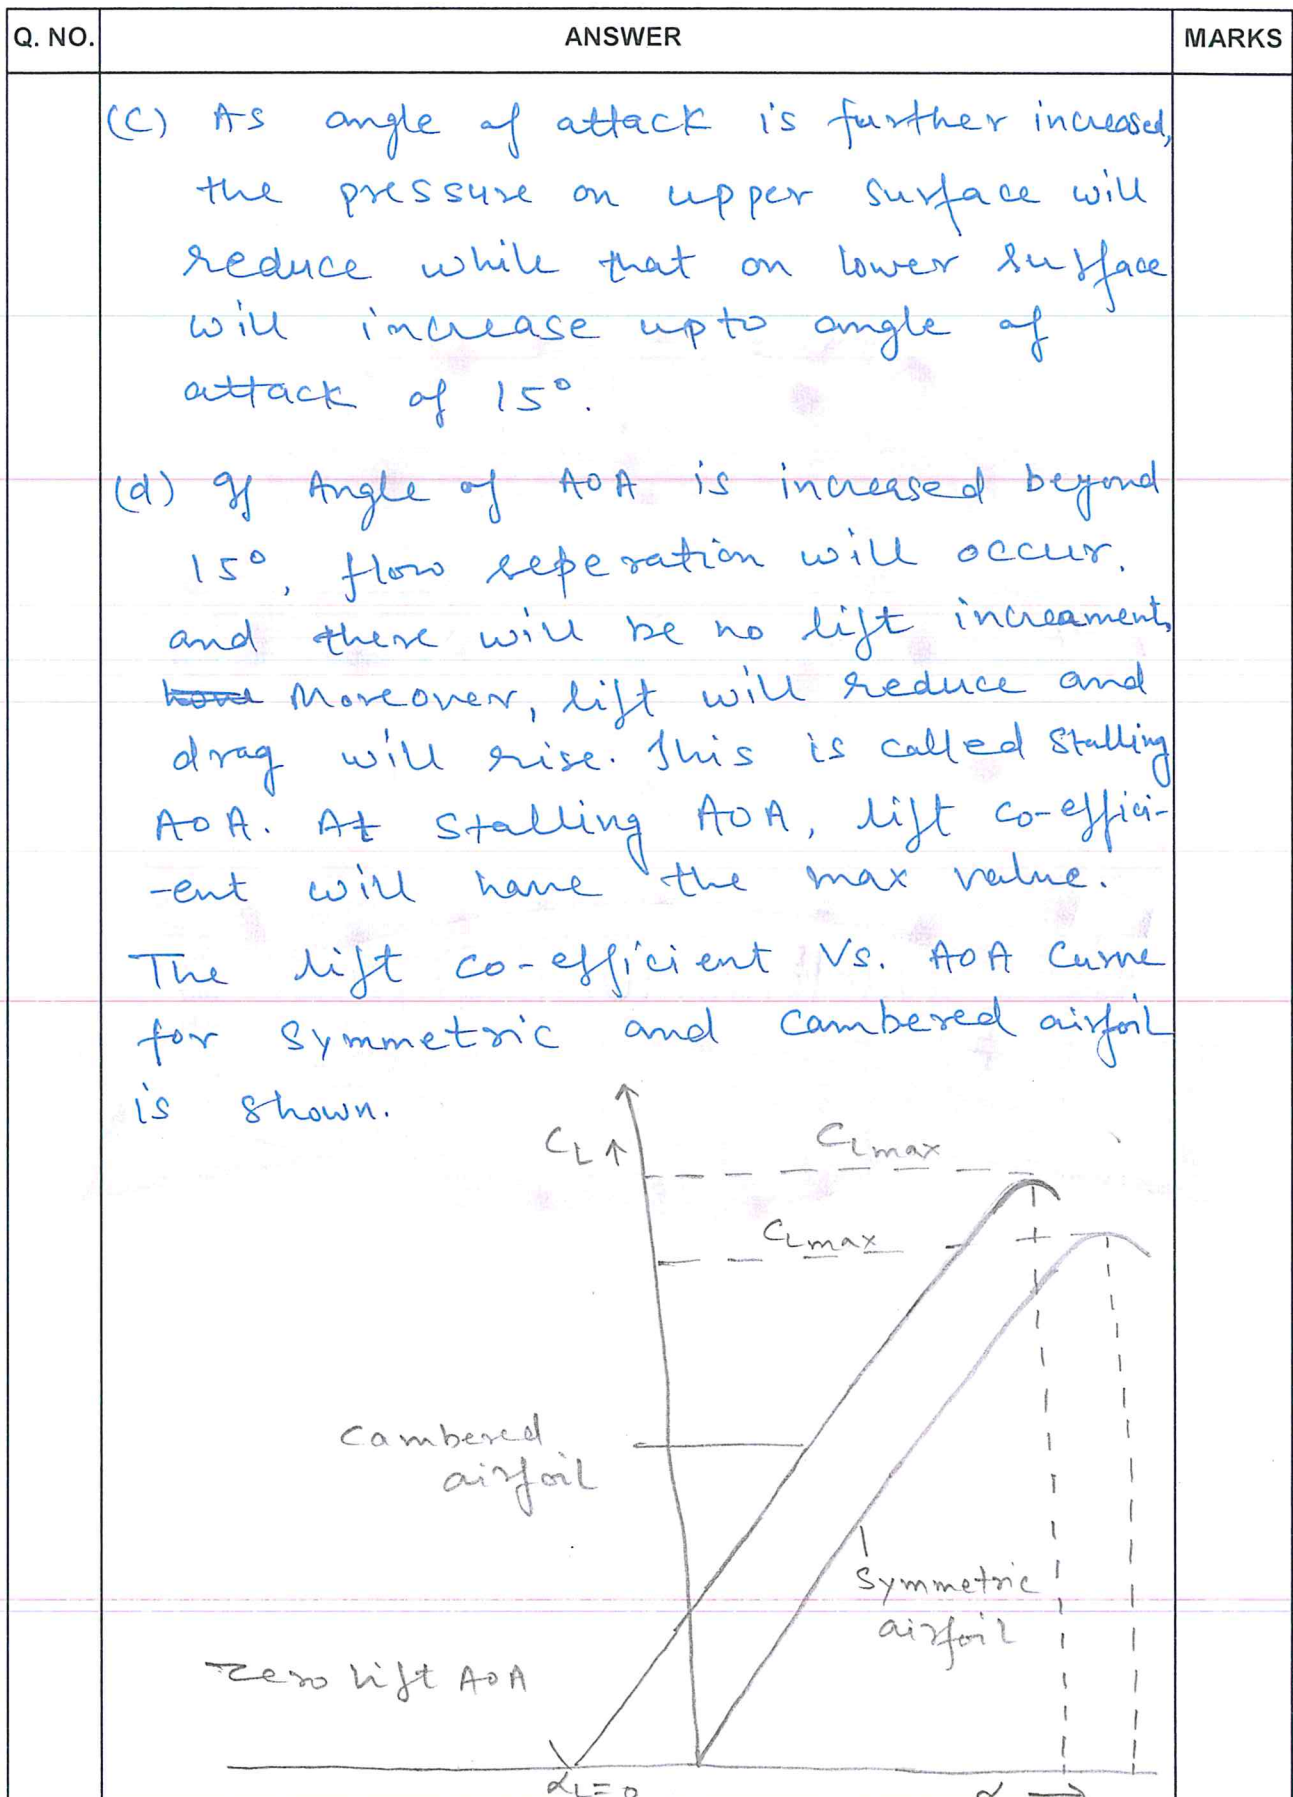 Q. NO. ANSWER MARKS
(C) As angle of attack is further increased,
the pressure on upper surface will
reduce while that on lower surface
will increase upto angle of
attack of 15°.
(d) If Angle of AOA is increased beyond
15°, flow seperation will occur.
and there will be no lift increament,
Moreover, lift will reduce and
drag will rise. This is called Stalling
AOA. At Stalling AOA, lift co-effici-
-ent will have the max value.
The lift co-efficient Vs. AOA Curve
for Symmetric and Cambered airfoil
is shown.
CL ↑
CLmax
CLmax
Cambered
airfoil
Symmetric
airfoil
Zero lift AOA
αL=0
α →